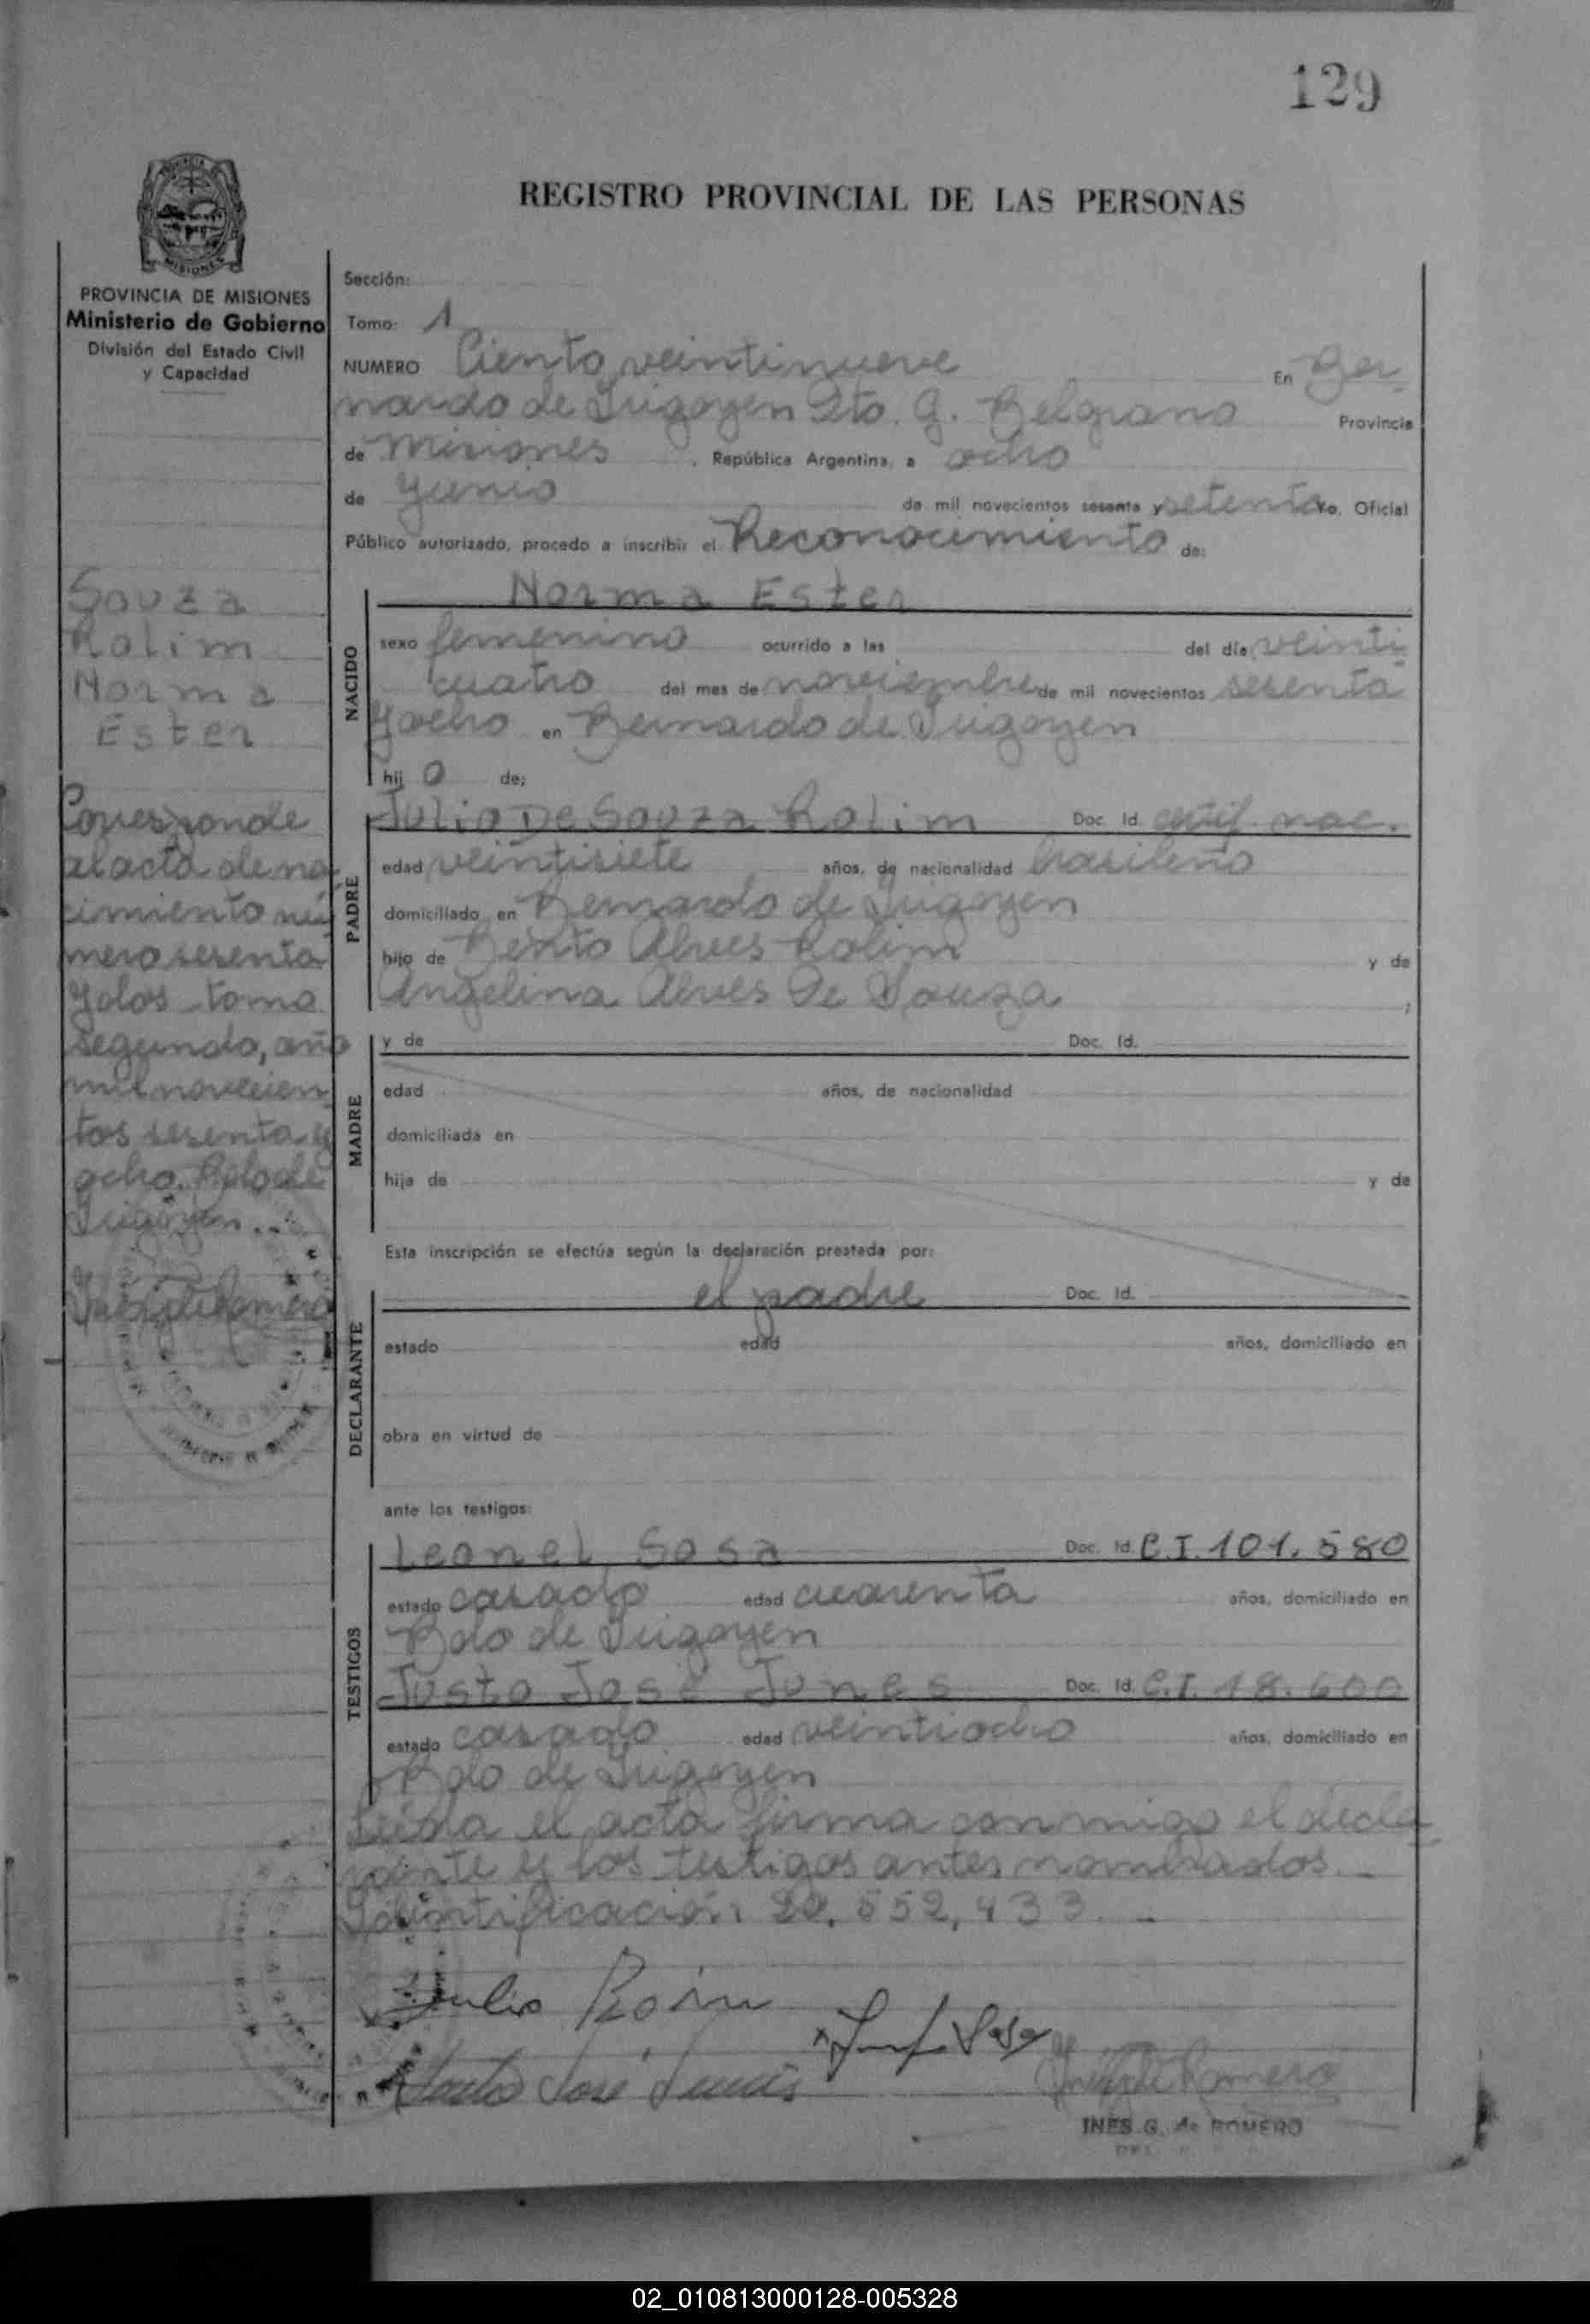 129
REGISTRO PROVINCIAL DE LAS PERSONAS
MISIONES
PROVINCIA DE MISIONES
Ministerio de Gobierno
División del Estado Civil
y Capacidad
Souza
Rolim
Norma
Ester
Corresponde
al acta de na
cimiento nú
mero sesenta
y dos tomo
segundo, año
mil novecien
tos sesenta y
ocho. Bdo de
Irigoyen..
Sección:
Tomo: 1
NUMERO Ciento veintinueve En Ber
nardo de Irigoyen Dto. G. Belgrano Provincia
de Misiones, República Argentina, a ocho
de Junio de mil novecientos sesenta y setenta Yo, Oficial
Público autorizado, procedo a inscribir el Reconocimiento de:
NACIDO
Norma Ester
sexo femenino ocurrido a las del día veinti
cuatro del mes de noviembre de mil novecientos sesenta
y ocho en Bernardo de Irigoyen
hij o de;
PADRE
Julio De Souza Rolim Doc. Id. certif. nac.
edad veintisiete años, de nacionalidad brasileño
domiciliado en Bernardo de Irigoyen
hijo de Bento Alves Rolim y de
Angelina Alves De Souza ;
MADRE
y de Doc. Id.
edad años, de nacionalidad
domiciliada en
hija de y de
Esta inscripción se efectúa según la declaración prestada por:
DECLARANTE
el padre Doc. Id.
estado edad años, domiciliado en
obra en virtud de
ante los testigos:
TESTIGOS
Leonel Sosa Doc. Id. C.I. 101.580
estado casado edad cuarenta años, domiciliado en
Bdo de Irigoyen
Justo José Junes Doc. Id. C.I. 18.600
estado casado edad veintiocho años, domiciliado en
Bdo de Irigoyen
Leída el acta firma conmigo el decla
rante y los testigos antes nombrados._
Identificación 20.552,433._
Julio
Sosa
José
INES G. de ROMERO
02_010813000128-005328